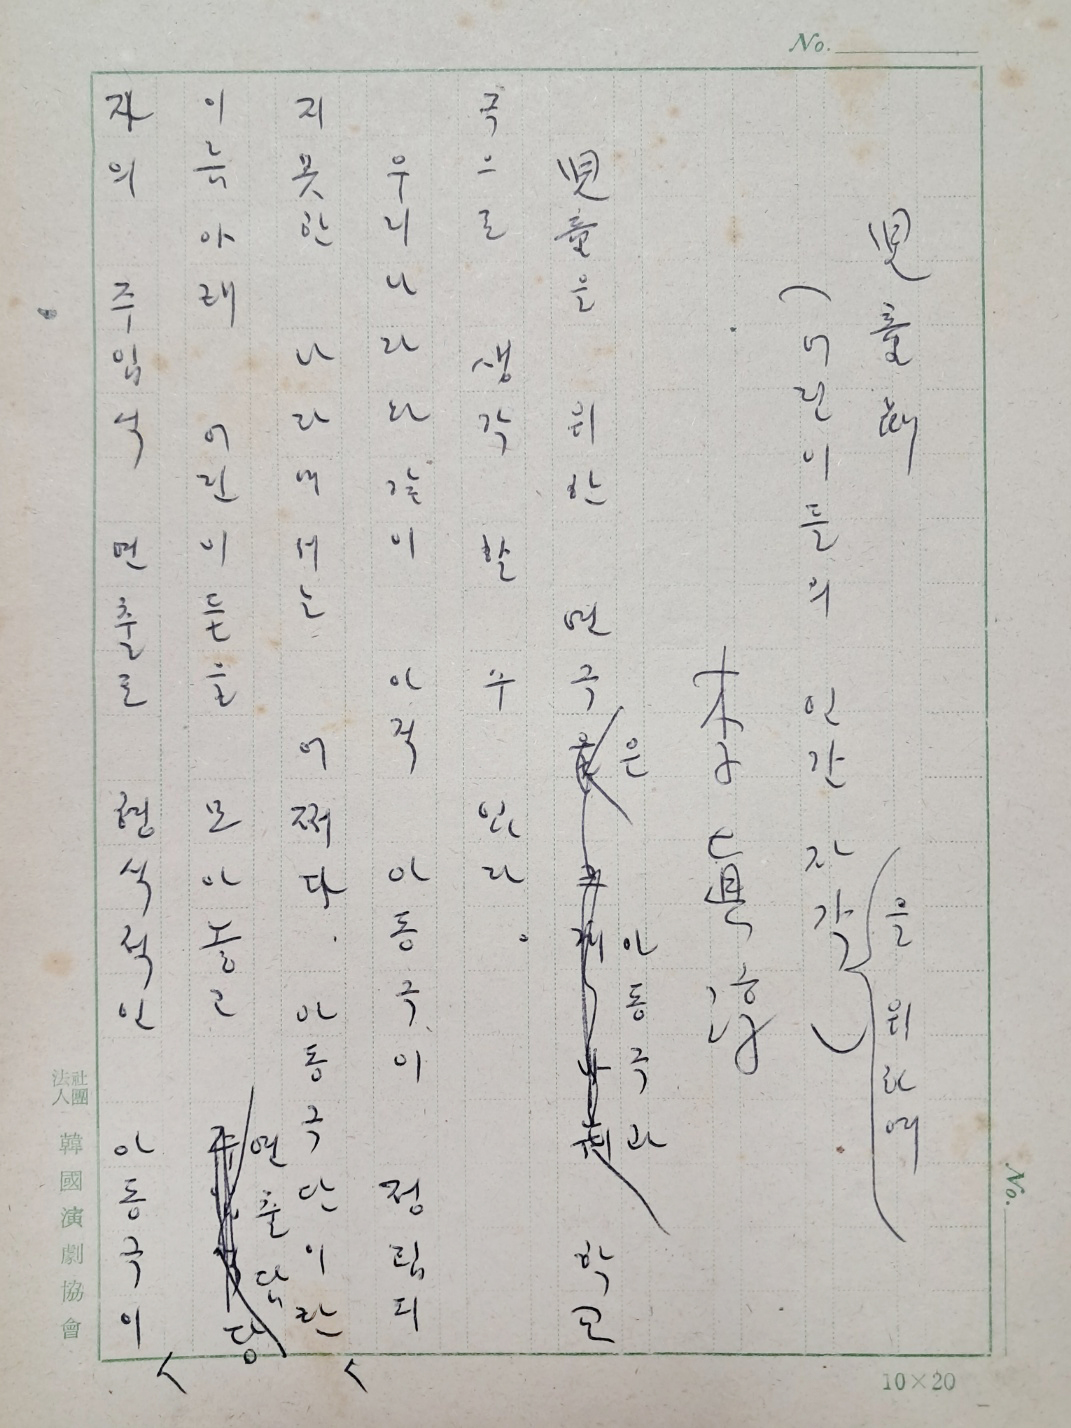 No.
兒童劇
(어린이들의 인간 자각)
을 위하여
李眞淳
兒童을 위한 연극은 아동극과 학교
극으로 생각 할 수 있다.
우리나라와 같이 아직 아동극이 정립되
지 못한 나라에서는 어쩌다. 아동극단이란
이름아래 어린이들을 모아놓고 연출담당
자의 주입식 연출로 형식적인 아동극이
社團法人 韓國演劇協會
No.
10×20